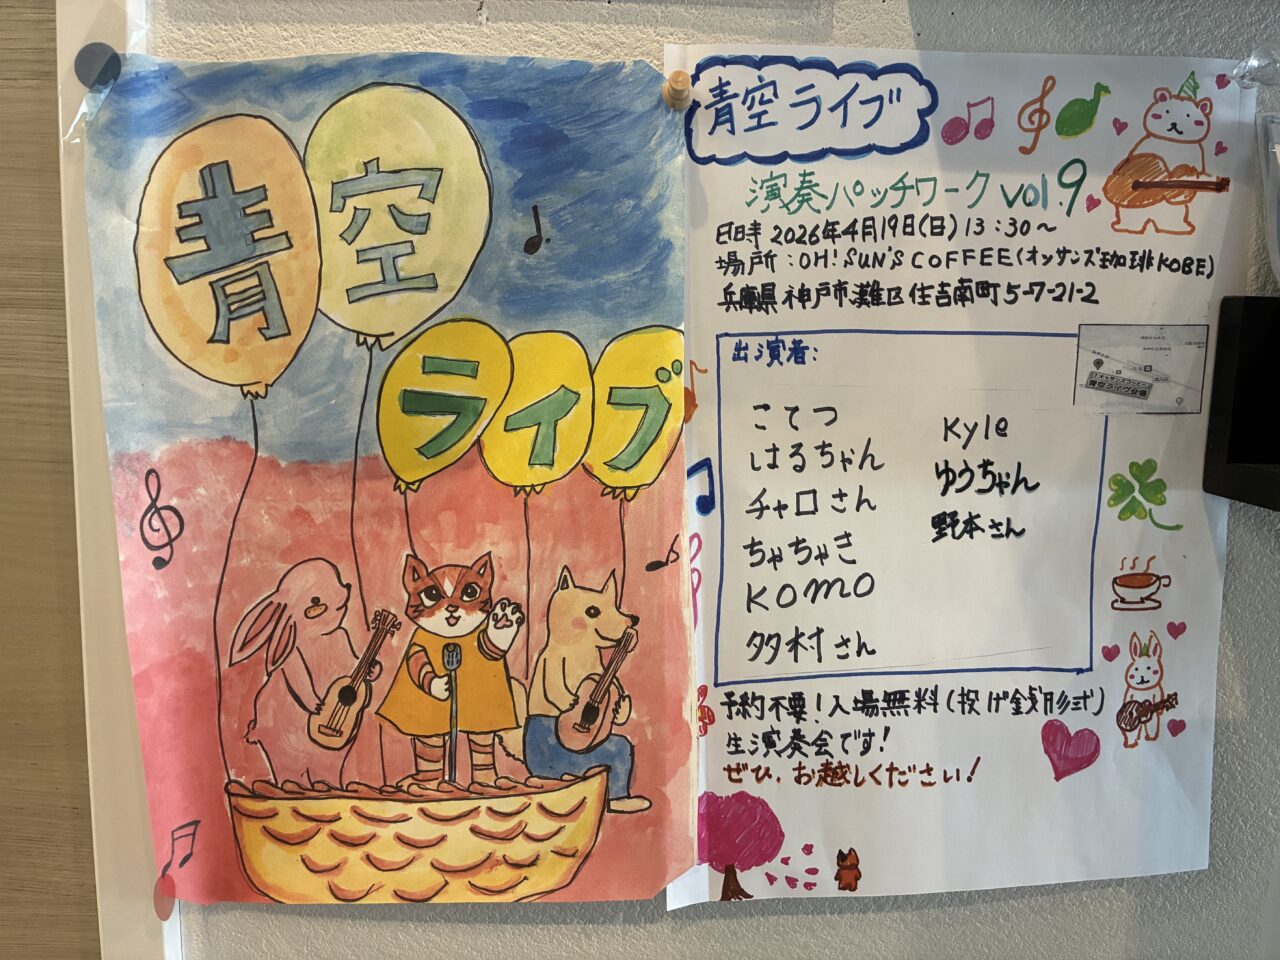 青空
ライブ
青空ライブ
演奏パッチワーク vol.9
日時 2026年4月19日(日) 13:30〜
場所:OH! SUN'S COFFEE(オッサンズ珈琲KOBE)
兵庫県神戸市灘区住吉南町5-7-21-2
出演者:
こてつ
はるちゃん
チャロさん
ちゃちゃき
KOMO
多村さん
Kyle
ゆうちゃん
野本さん
青空ライヴ会場
予約不要!入場無料(投げ銭形式)
生演奏会です!
ぜひ、お越しください!